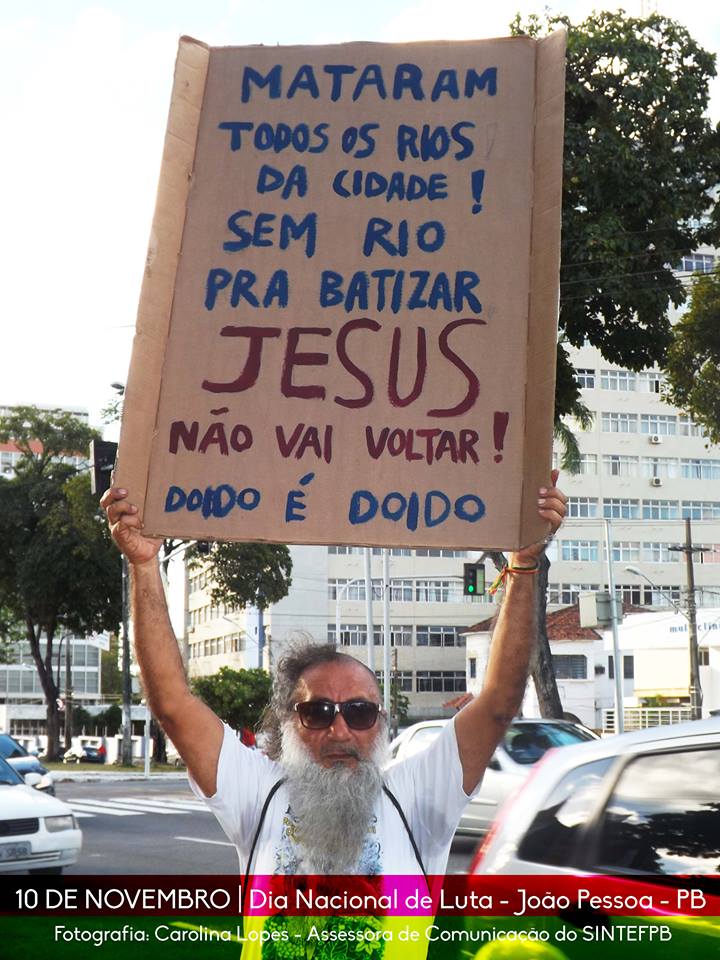 MATARAM
TODOS OS RIOS
DA CIDADE !
SEM RIO
PRA BATIZAR
JESUS
NÃO VAI VOLTAR !
DOIDO É DOIDO
10 DE NOVEMBRO | Dia Nacional de Luta - João Pessoa - PB
Fotografia: Carolina Lopes - Assessora de Comunicação do SINTEFPB